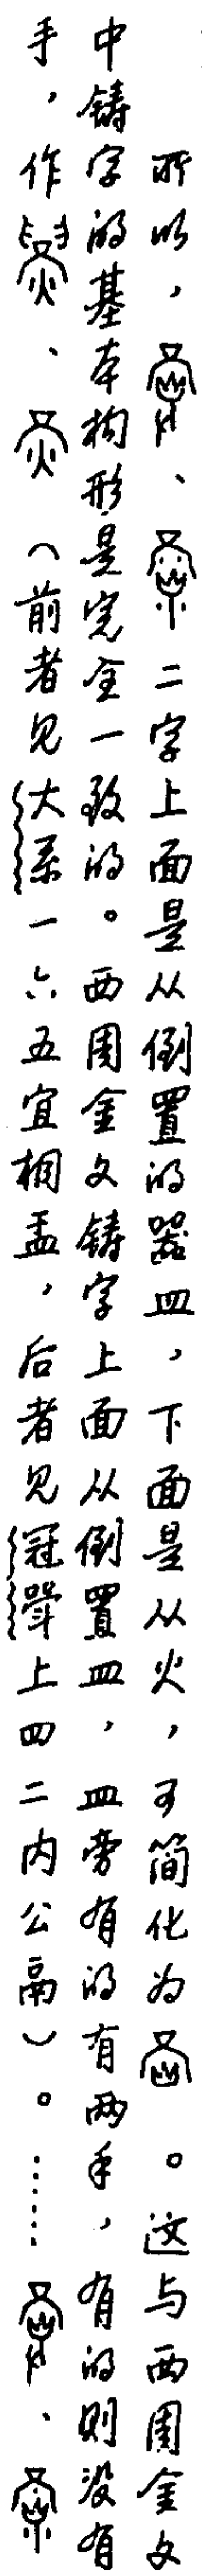 所以，、二字上面是从倒置的器皿，下面是从火，可简化为。这与西周金文
中铸字的基本构形是完全一致的。西周金文铸字上面从倒置皿，皿旁有的有两手，有的则没有
手，作、（前者见大系一六五宜桐盂，后者见冠斝上四二内公鬲）。……、